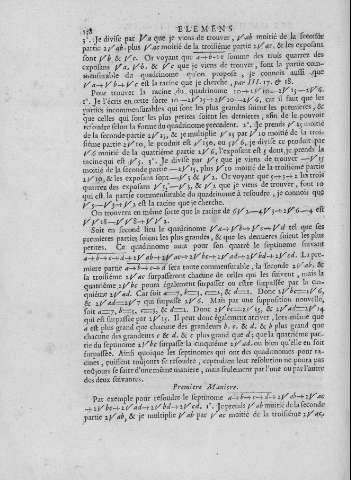 158 ELEMENS
1°. Je divise par √a que je viens de trouver, √ab moitié de la seconde
partie 2√ab, plus √ac moitié de la troisième partie 2√ac, & les exposans
sont √b & √c. Or voyant que a+b+c somme des trois quarrez des
exposans √a, √b, & √c que je viens de trouver, font la partie com-
mensurable du quadrinome qu'on propose, je connois aussi que
√a+√b+√c est la racine que je cherche, par III. 17. & 18.
Pour trouver la racine du quadrinome
1°. Je l'écris en cette sorte 10 en sorte que les
parties incommensurables qui sont les plus grandes soient les premieres, &
que celles qui sont les plus petites soient les dernieres, afin de le pouvoir
resoudre selon la forme du quadrinome precedent. 2°. Je prends √15 moitié
de la seconde partie 2√15, & je multiplie √15 par √10 moitié de la troi-
sième partie 2√10, le produit est √150, ou 5√6, je divise ce produit par
√6 moitié de la quatrième partie 2√6, l'exposant est 5 dont je prends la
racine qui est √5. 3°. Je divise par √5 que je viens de trouver —√15
moitié de la seconde partie —2√15, plus √10 moitié de la troisième partie
2√10, & les exposans sont —√3 & √2. Or voyant que 5+3+2 les trois
quarrez des exposans √5, —√3, & √2 que je viens de trouver, font 10
qui est la partie commensurable du quadrinome à resoudre, je connois que
√5—√3+√2 est la racine que je cherche.
On trouvera en même sorte que la racine de
Soit en second lieu le quadrinome √a+√b+√c+√d tel que ses
premieres parties soient les plus grandes, & que les dernieres soient les plus
petites. Ce quadrinome aura pour son quarré le septinome suivant
a+b+c+d+2√ab+2√ac+2√bc+2√ad+2√bd+2√cd. La pre-
miere partie a+b+c+d sera toute commensurable, la seconde 2√ab, &
sa troisième 2√ac surpasseront chacune de celles qui les suivent, mais la
quatrième 2√bc pourra également surpasser ou estre surpassée par la cin-
quième 2√ad.
Mais par une supposition nouvelle,
qui est surpassée par 2√15. Il peut donc également arriver, lors même que
a est plus grand que chacune des grandeurs b. c. & d. & b plus grand que
chacune des grandeurs c & d. & c plus grand que d; que la quatrième par-
tie du septinome 2√bc surpasse la cinquième 2√ad, ou bien qu'elle en soit
surpassée. Ainsi quoique les septinomes qui ont des quadrinomes pour ra-
cines, puissent toûjours se resoudre, cependant leur resolution ne pourra pas
toûjours se faire d'une même maniere, mais seulement par l'une ou par l'autre
des deux suivantes.
Premiere Maniere.
Par exemple pour resoudre le septinome a+b+c+d+2√ab+2√ac
+2√bc+2√ad+2√bd+2√cd. 1°. Je prends √ab moitié de la seconde
partie 2√ab, & je multiplie √ab par √ac moitié de la troisième 2√ac,